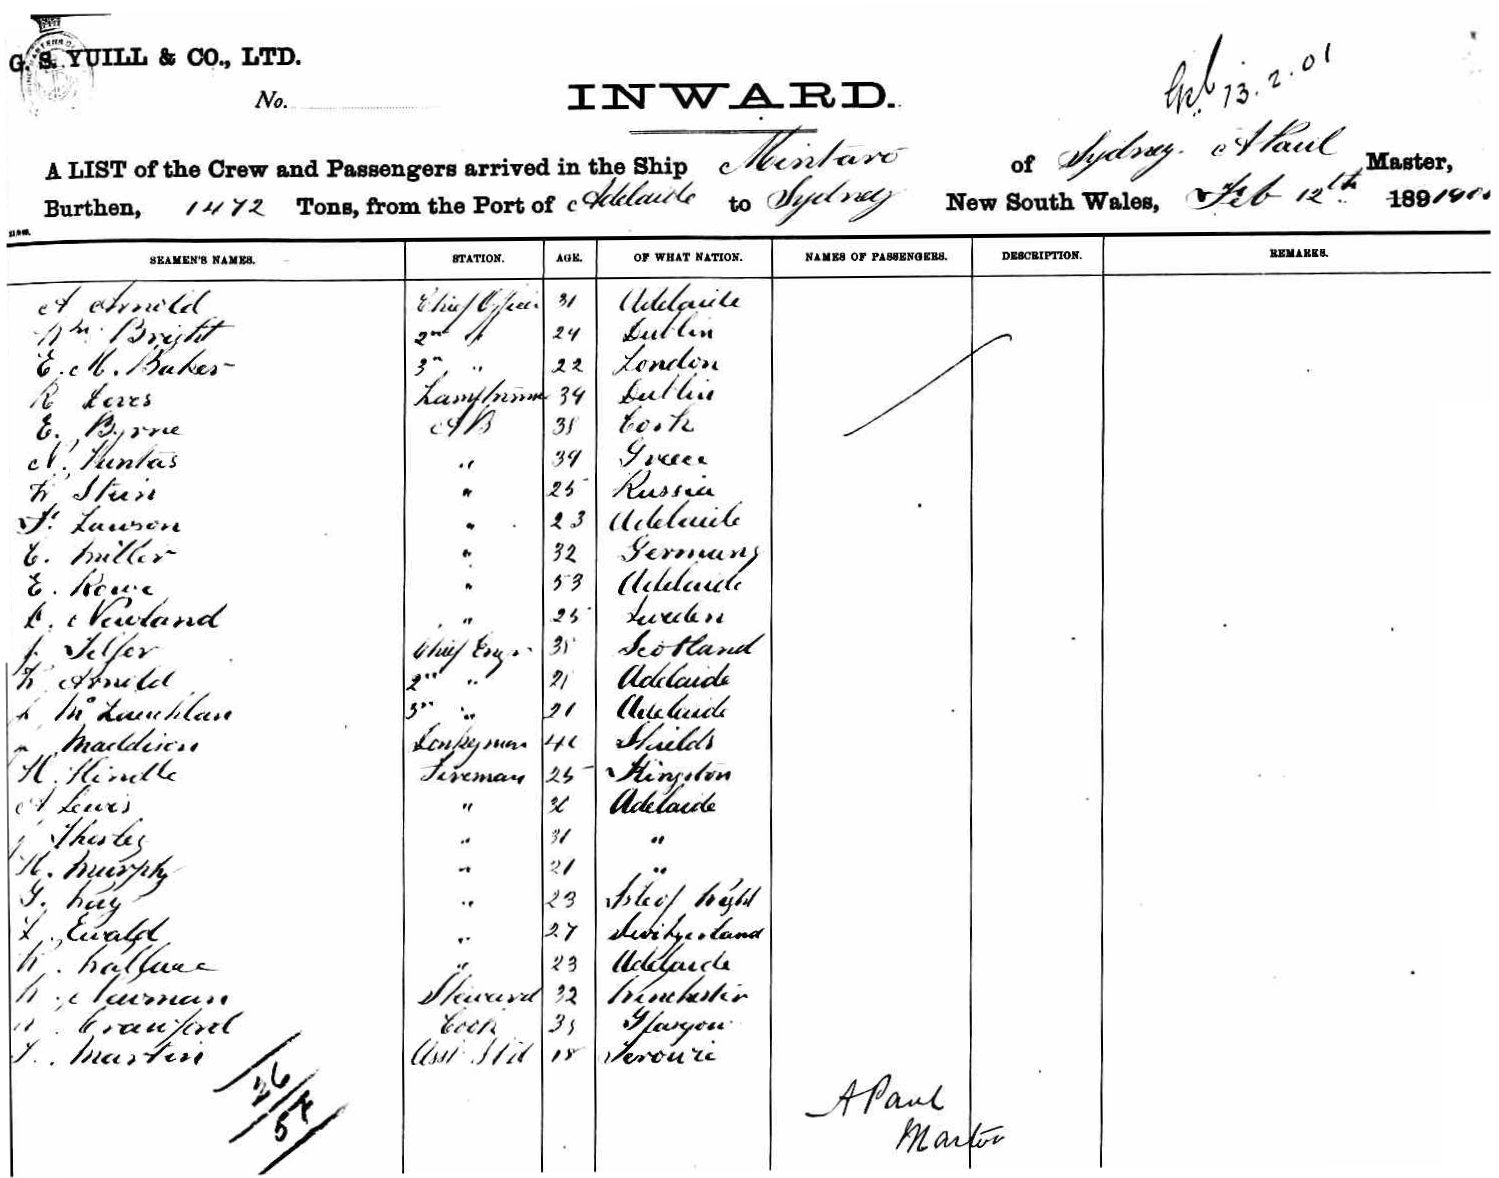 G. S. YUILL & CO., LTD.
No.
INWARD.
13.2.01
A LIST of the Crew and Passengers arrived in the Ship Mintaro of Sydney. A Paul Master,
Burthen, 1472 Tons, from the Port of Adelaide to Sydney New South Wales, Feb 12th 189 190
SEAMEN'S NAMES. STATION. AGE. OF WHAT NATION. NAMES OF PASSENGERS. DESCRIPTION. REMARKS.
A Arnold Chief Officer 31 Adelaide
Wm Bright 2nd " 24 Dublin
E. M. Baker 3rd " 22 London
R Lamptrimmer 34 Dublin
E. Byrne AB 38 Cork
N. " 39 Greece
W Stein " 25 Russia
F. Lawson " 23 Adelaide
C. Miller " 32 Germany
E. Rowe " 53 Adelaide
Newland " 25 Sweden
J. Telfer Chief Engr 35 Scotland
W Arnold 2nd " 21 Adelaide
McLauchlan 3rd " 21 Adelaide
Maddison Donkeyman Shields
H. Hindle Fireman 25 Kingston
A Lewis " Adelaide
" 31 "
H. Murphy " 21 "
G. Kay " 23 Isle of Wight
Ewald " 27 Switzerland
W. Wallace " 23 Adelaide
W. Newman Steward 32 Winchester
Crawford Cook Glasgow
Martin Asst Std 18 Terowie
26
A Paul
Master